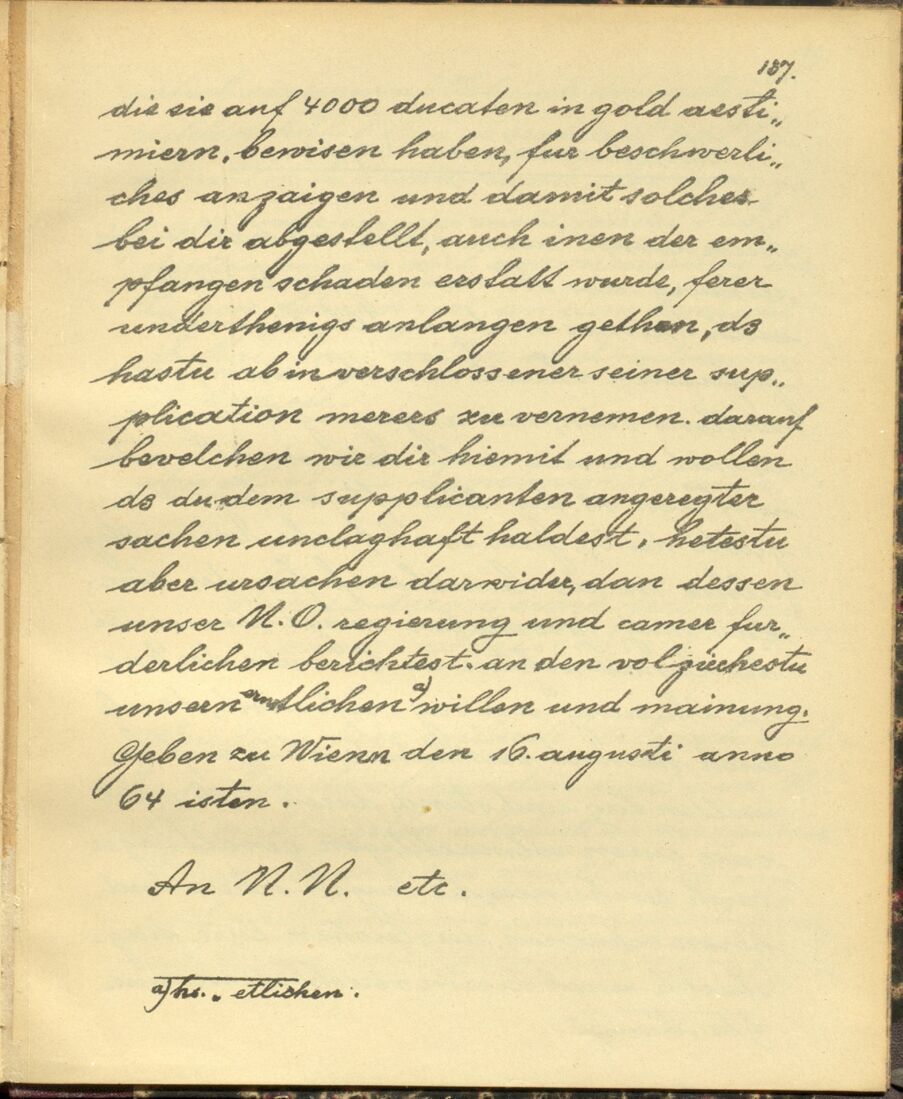 187.
die sie auf 4000 ducaten in gold aesti„
miern, bewisen haben, fur beschwerli„
ches anzaigen und damit solches
bei dir abgestellt, auch inen der em„
pfangen schaden erstatt wurde, ferer
underthenigs anlangen gethan, ds
hastu ab in verschlossener seiner sup„
plication merers zu vernemen. darauf
bevelchen wir dir hiemit und wollen
ds du dem supplicanten angeregter
sachen unclaghaft haldest, hetestu
aber ursachen darwider, dan dessen
unser N. O. regierung und camer fur„
derlichen berichtest. an den volziechestu
unsern ernstlichen a) willen und mainung.
Geben zu Wienn den 16. augusti anno
64 isten.
An N. N. etc.
a) hs. „ etlichen.